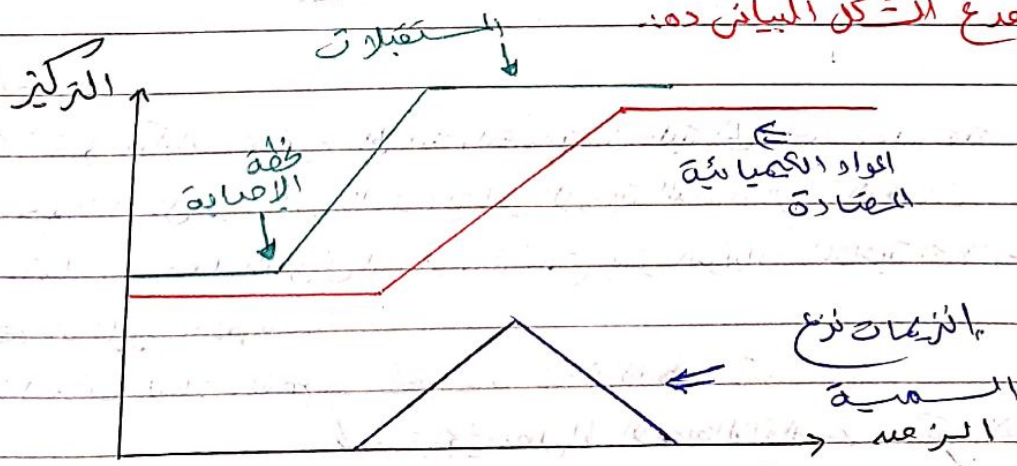 الشكل البياني ده:
المستقبلات
التركيز
لحظة
الإصابة
المواد الكيميائية
المضادة
إنزيمات نزع
السمية
الزمن